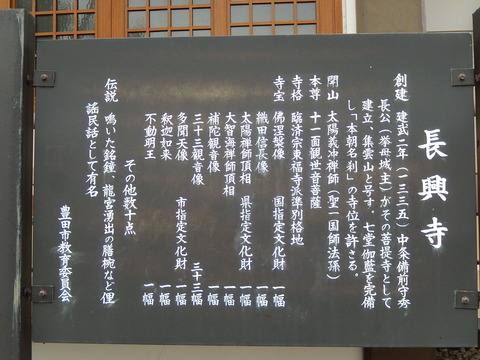 長興寺
創建 建武二年(一三三五)中条備前守秀
長公(挙母城主)がその菩提寺として
建立、集雲山と号す。七堂伽藍を完備
し「本朝名刹」の寺位を許さる。
開山 太陽義冲禅師(聖一国師法孫)
本尊 十一面観世音菩薩
寺格 臨済宗東福寺派準別格地
寺宝 佛涅槃像 国指定文化財 一幅
織田信長像 〃 一幅
太陽禅師頂相 県指定文化財 一幅
大智海禅師頂相 〃 一幅
補陀観音像 一幅
三十三観音像 三十三幅
多聞天像 市指定文化財 一幅
釈迦如来 一幅
不動明王 一幅
その他数十点
伝説 鳴いた銘鐘、龍宮湧出の膳椀など俚
謡民話として有名
豊田市教育委員会